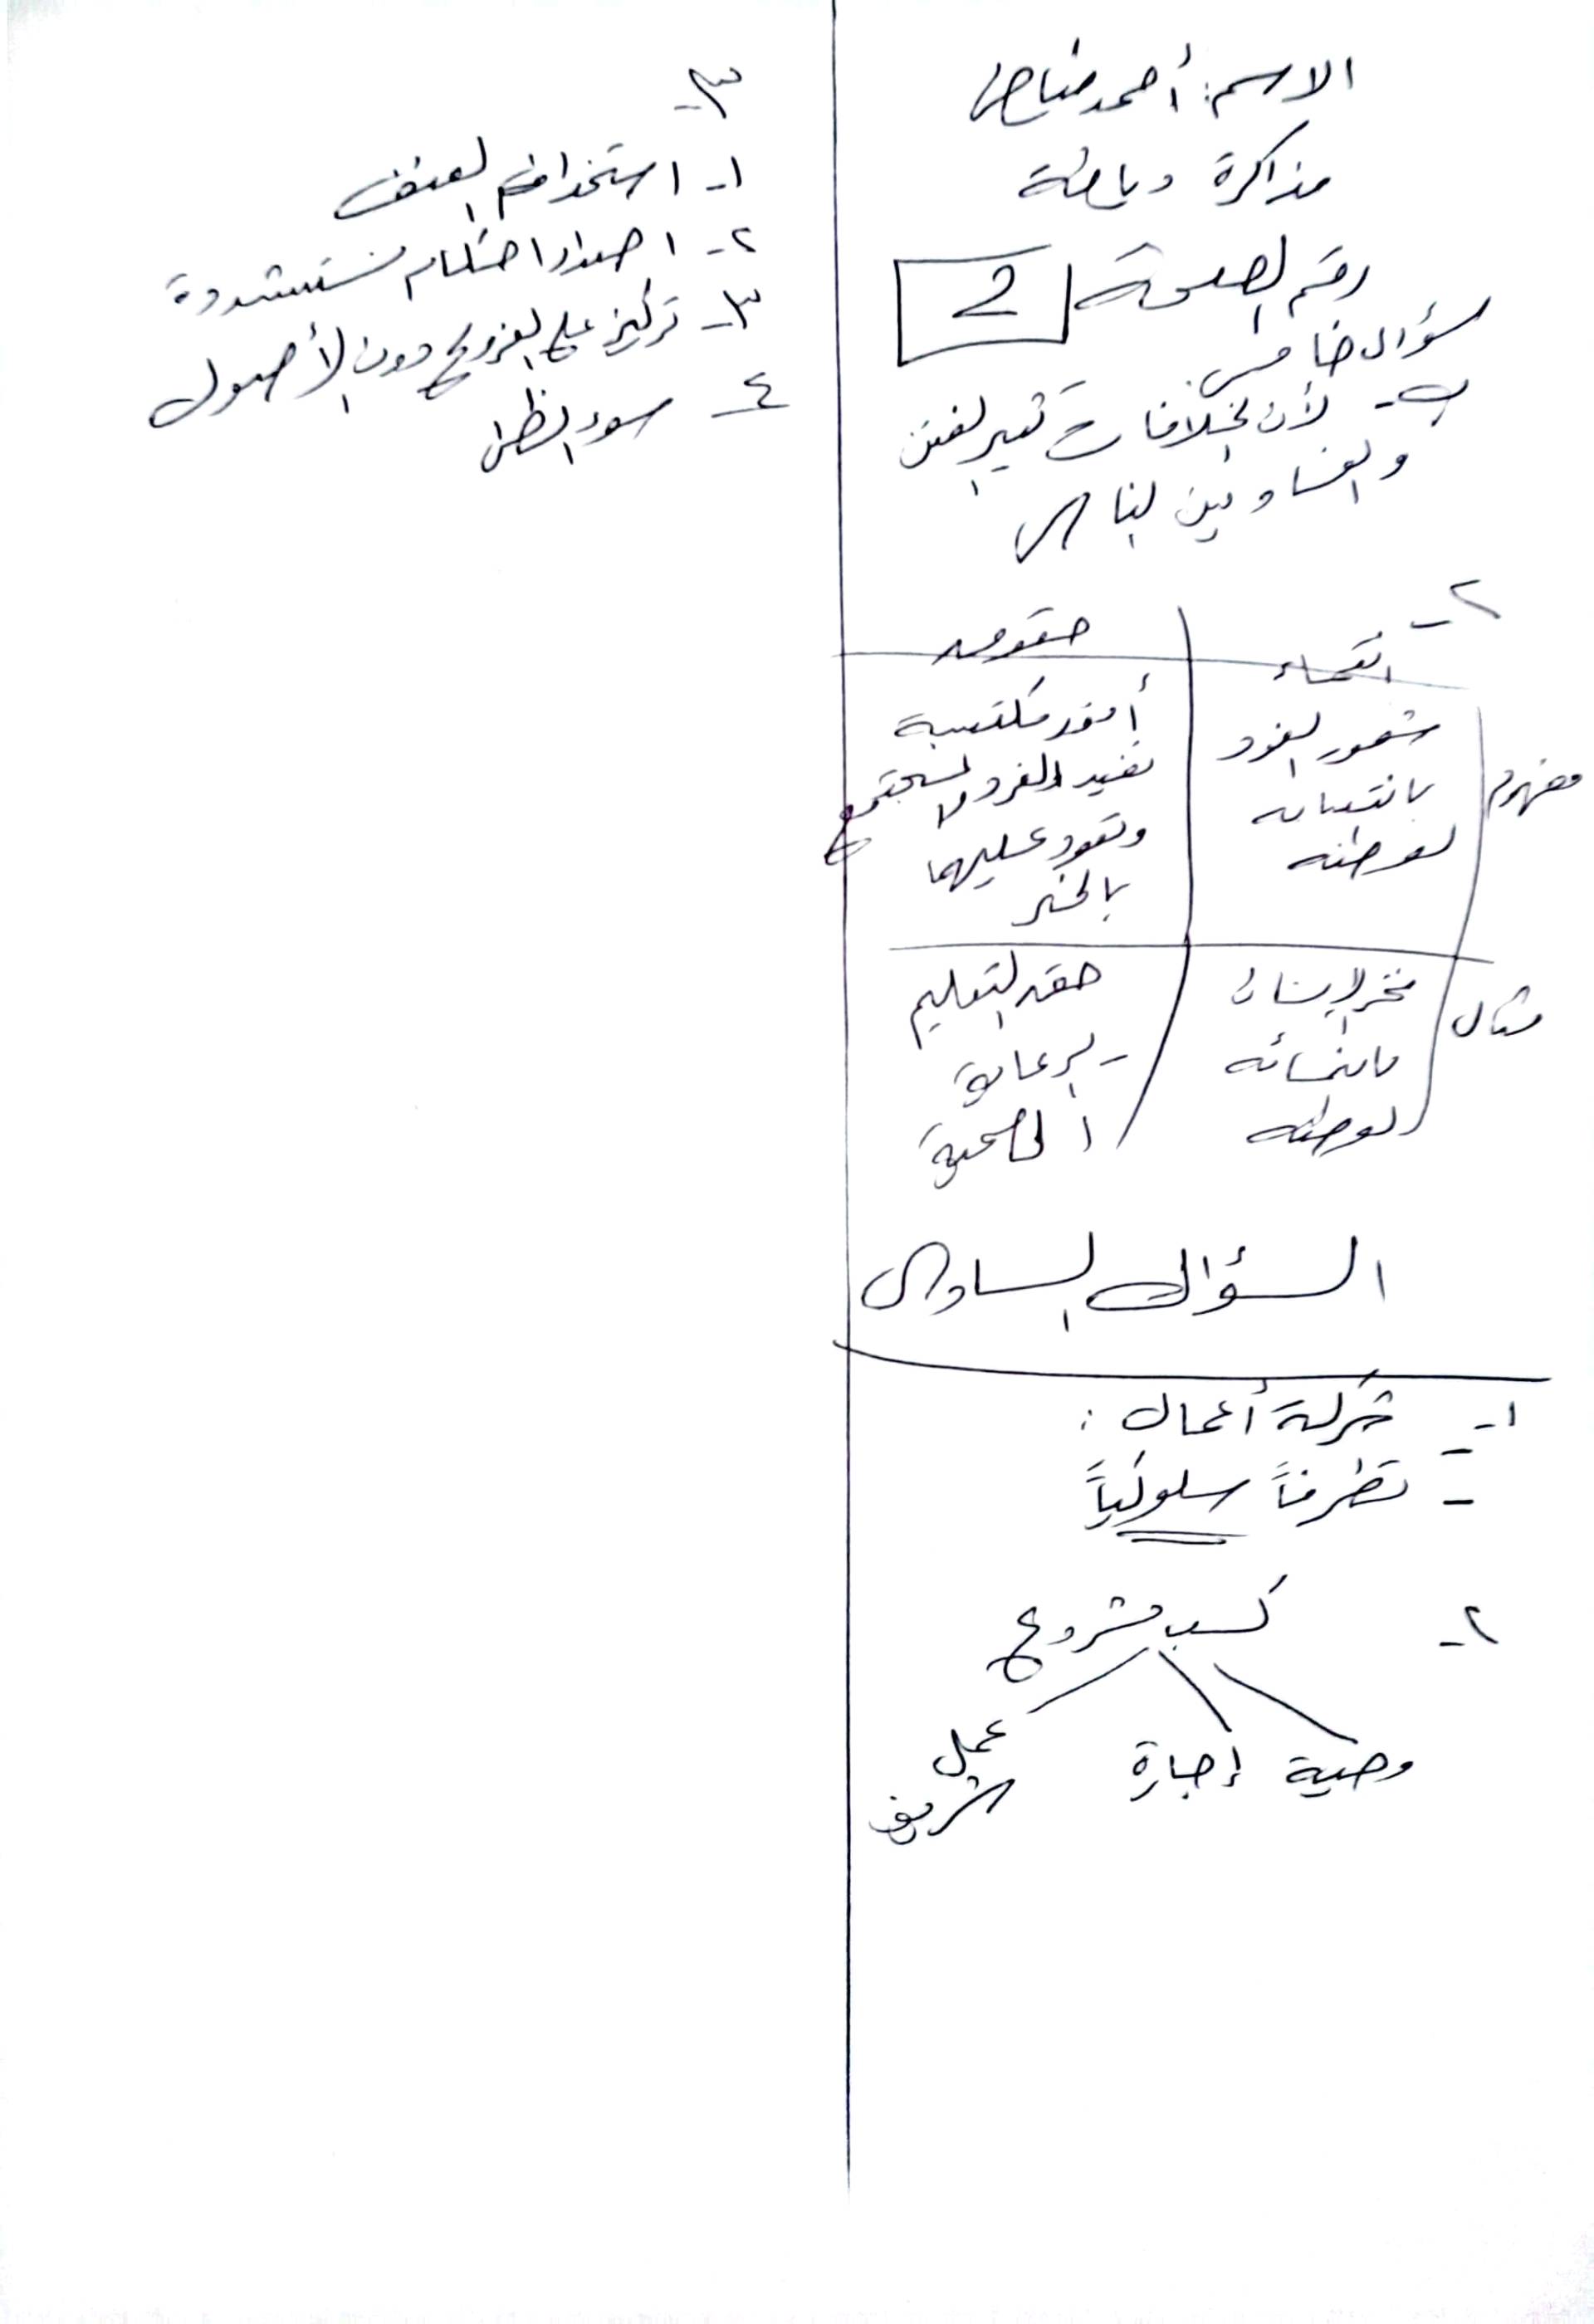 الاسم: أحمد
مذاكرة ديانة
رقم الصفحة 2
سؤال خامس
ب- لأن الخلافات تثير الفتن
والفساد بين الناس
٢-
انتماء | حقوق
مفهوم | شعور الفرد بانتمائه لوطنه | أمور مكتسبة تفيد الفرد والمجتمع وتعود عليهما بالخير
مثال | فخر الإنسان بانتمائه لوطنه | حق التعليم - الرعاية الصحية
السؤال السادس
١- شركة أعمال:
- تطرفاً سلوكياً
٢- كسب مشروع
وصية إجارة عمل شريف
٣-
١- استخدام العنف
٢- اصدار احكام متشددة
٣- تركيز على الفروع دون الأصول
٤- سوء الظن